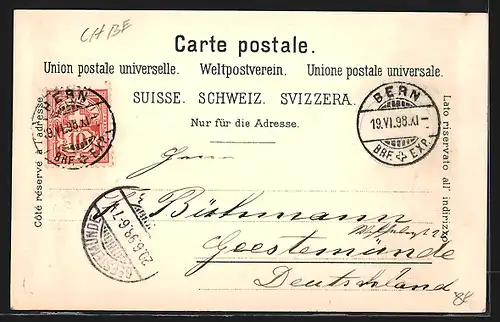 CH BE
Carte postale.
Union postale universelle. Weltpostverein. Unione postale universale.
SUISSE. SCHWEIZ. SVIZZERA.
Nur für die Adresse.
Côté réservé à l'adresse.
Lato riservato all' indirizzo.
BERN
19.VI.98.XI-
BRF. EXP.
BERN
19.VI.98.XI-
BRF. EXP.
Herrn
Büthmann
Geestemünde
Deutschland
GEESTEMUENDE
20.6.98.6-7